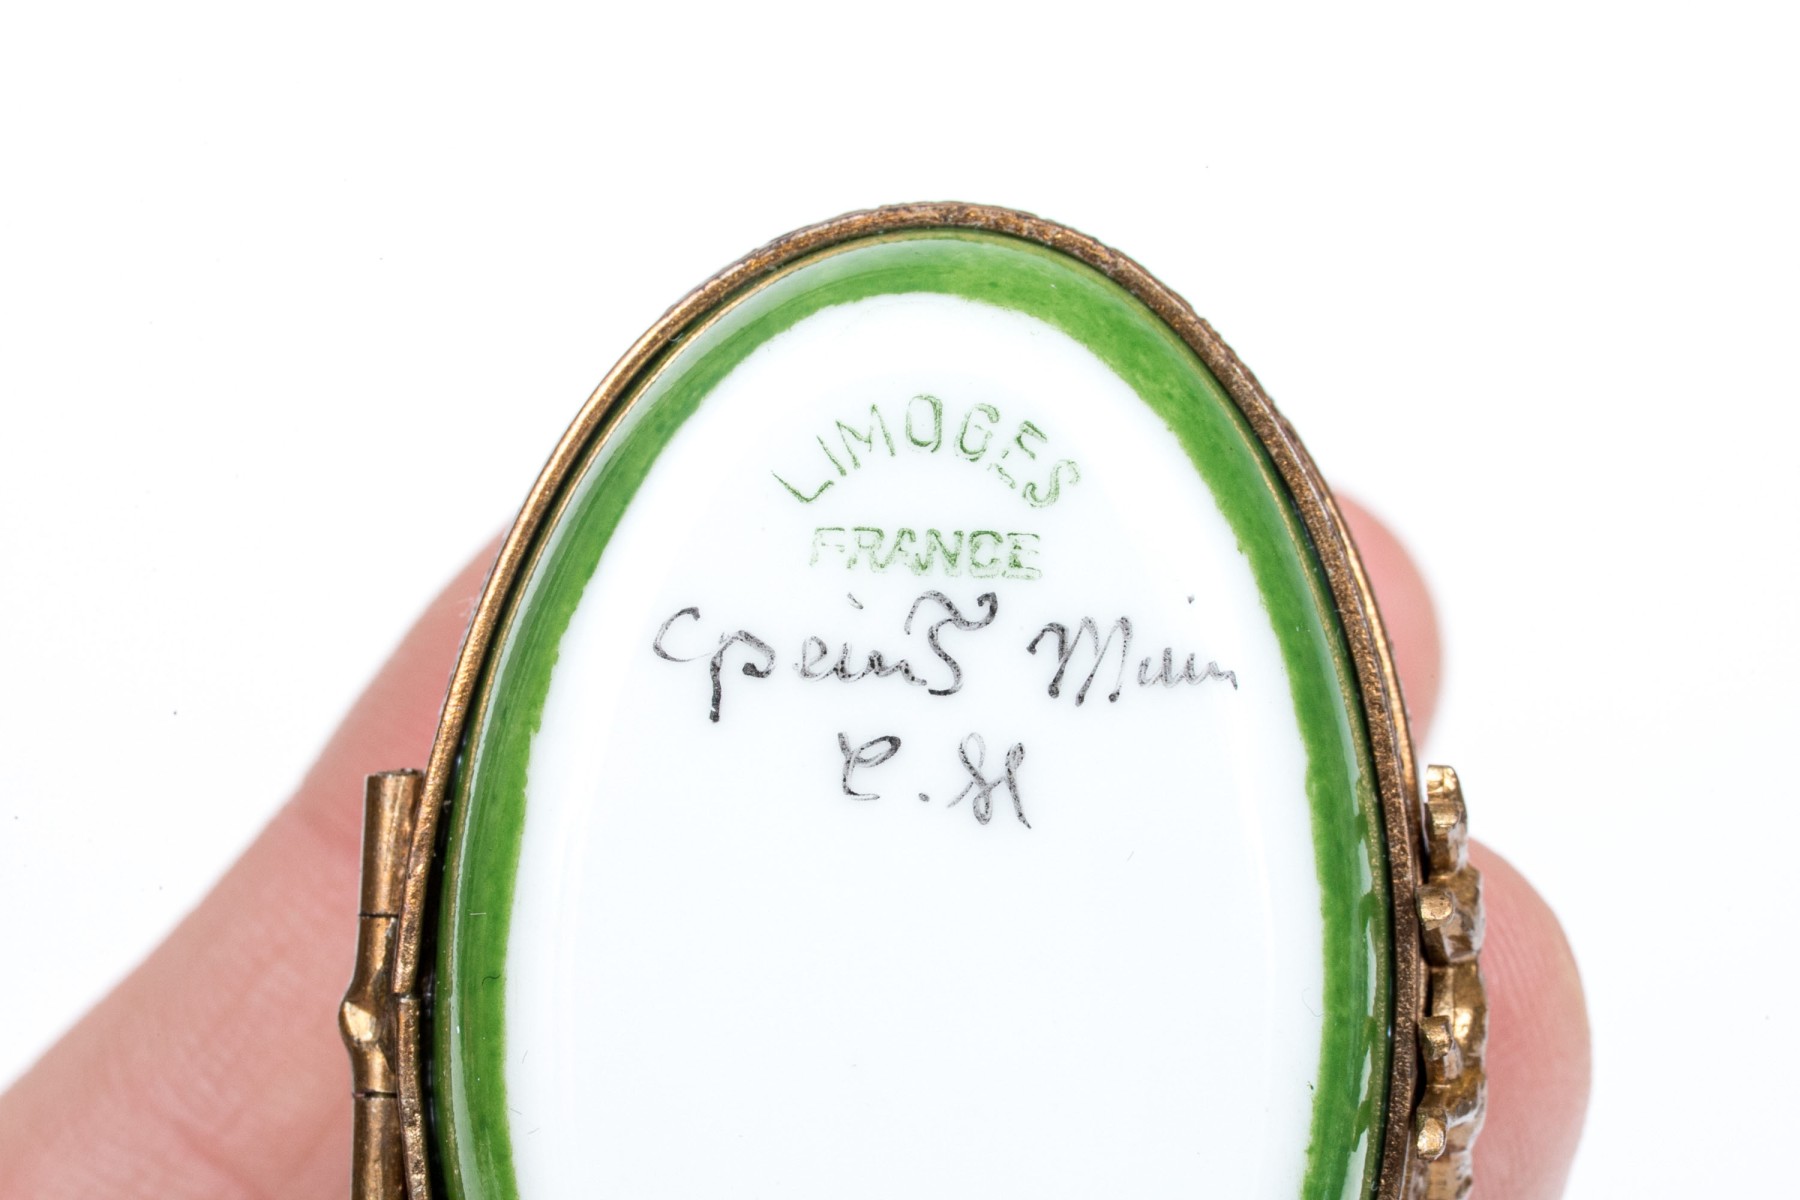 LIMOGES
FRANCE
peint Main
C.H